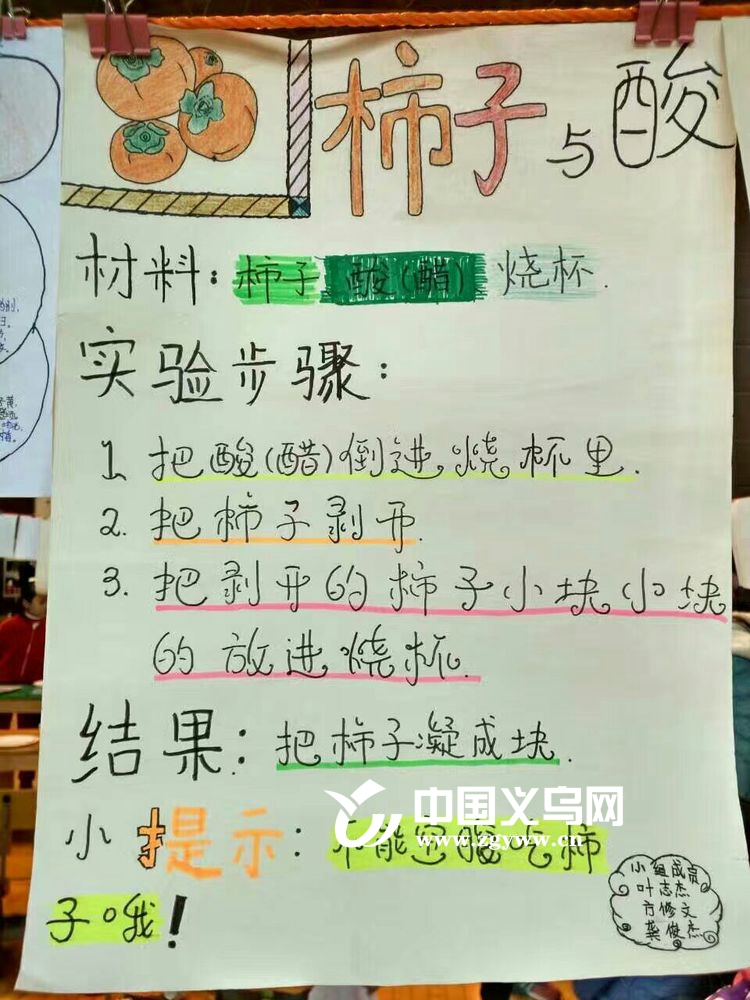 柿子与酸
材料：柿子 酸（醋） 烧杯.
实验步骤：
1. 把酸（醋）倒进烧杯里.
2. 把柿子剥开.
3. 把剥开的柿子小块小块
的放进烧杯.
结果：把柿子凝成块.
中国义乌网
www.zgyww.cn
小提示：不能空腹吃柿
子哦！
小组成员
叶志杰
方修文
龚俊杰